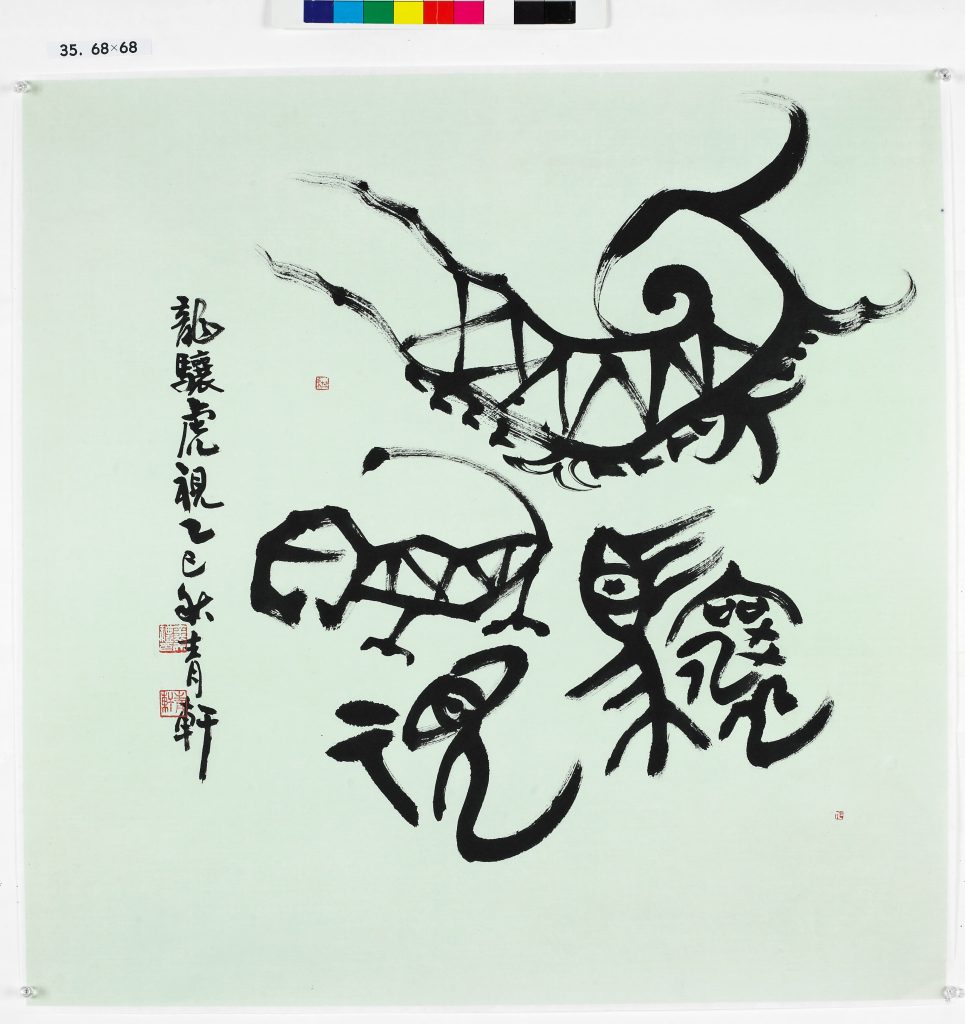 35. 68×68
龍驤虎視
龍驤虎視乙巳秋青軒